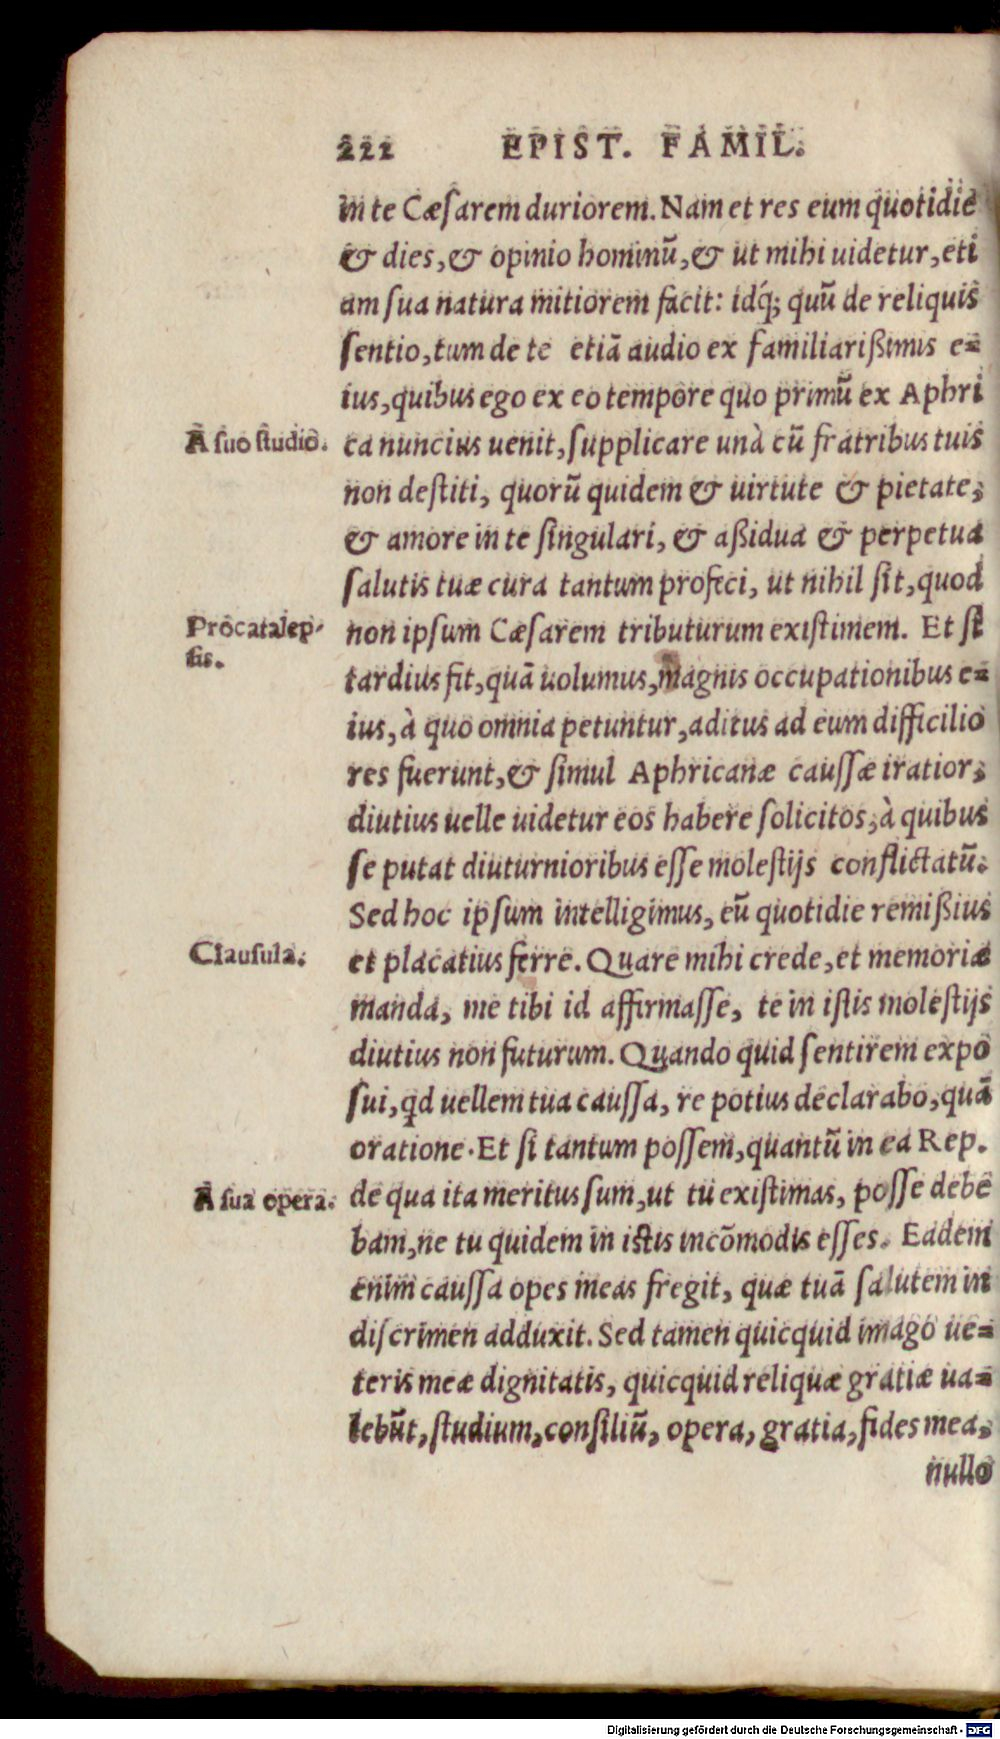 222 EPIST. FAMIL.
in te Cæſarem duriorem. Nam et res eum quotidie
& dies, & opinio hominū, & ut mihi uidetur, eti
am ſua natura mitiorem facit: idq́; quū de reliquis
ſentio, tum de te etiā audio ex familiarißimis e=
ius, quibus ego ex eo tempore quo primū ex Aphri
A ſuo ſtudio.
ca nuncius uenit, ſupplicare unà cū fratribus tuis
non deſtiti, quorū quidem & uirtute & pietate,
& amore in te ſingulari, & aßidua & perpetua
ſalutis tuæ cura tantum profeci, ut nihil ſit, quod
Procatalep-
ſis.
non ipſum Cæſarem tributurum exiſtimem. Et ſi
tardius fit, quā uolumus, magnis occupationibus e=
ius, à quo omnia petuntur, aditus ad eum difficilio
res fuerunt, & ſimul Aphricanæ cauſſæ iratior,
diutius uelle uidetur eos habere ſolicitos, à quibus
ſe putat diuturnioribus eſſe moleſtijs conflictatū.
Sed hoc ipſum intelligimus, eū quotidie remißius
Clauſula.
et placatius ferre. Quare mihi crede, et memoriæ
manda, me tibi id affirmaſſe, te in iſtis moleſtijs
diutius non futurum. Quando quid ſentirem expo
ſui, qd uellem tua cauſſa, re potius declarabo, quā
oratione. Et ſi tantum poſſem, quantū in ea Rep.
A ſua opera.
de qua ita meritus ſum, ut tu exiſtimas, poſſe debē
bam, ne tu quidem in iſtis incōmodis eſſes. Eadem
enim cauſſa opes meas fregit, quæ tuā ſalutem in
diſcrimen adduxit. Sed tamen quicquid imago ue=
teris meæ dignitatis, quicquid reliquæ gratiæ ua=
lebūt, ſtudium, conſiliū, opera, gratia, fides mea,
nullo
Digitalisierung gefördert durch die Deutsche Forschungsgemeinschaft - DFG